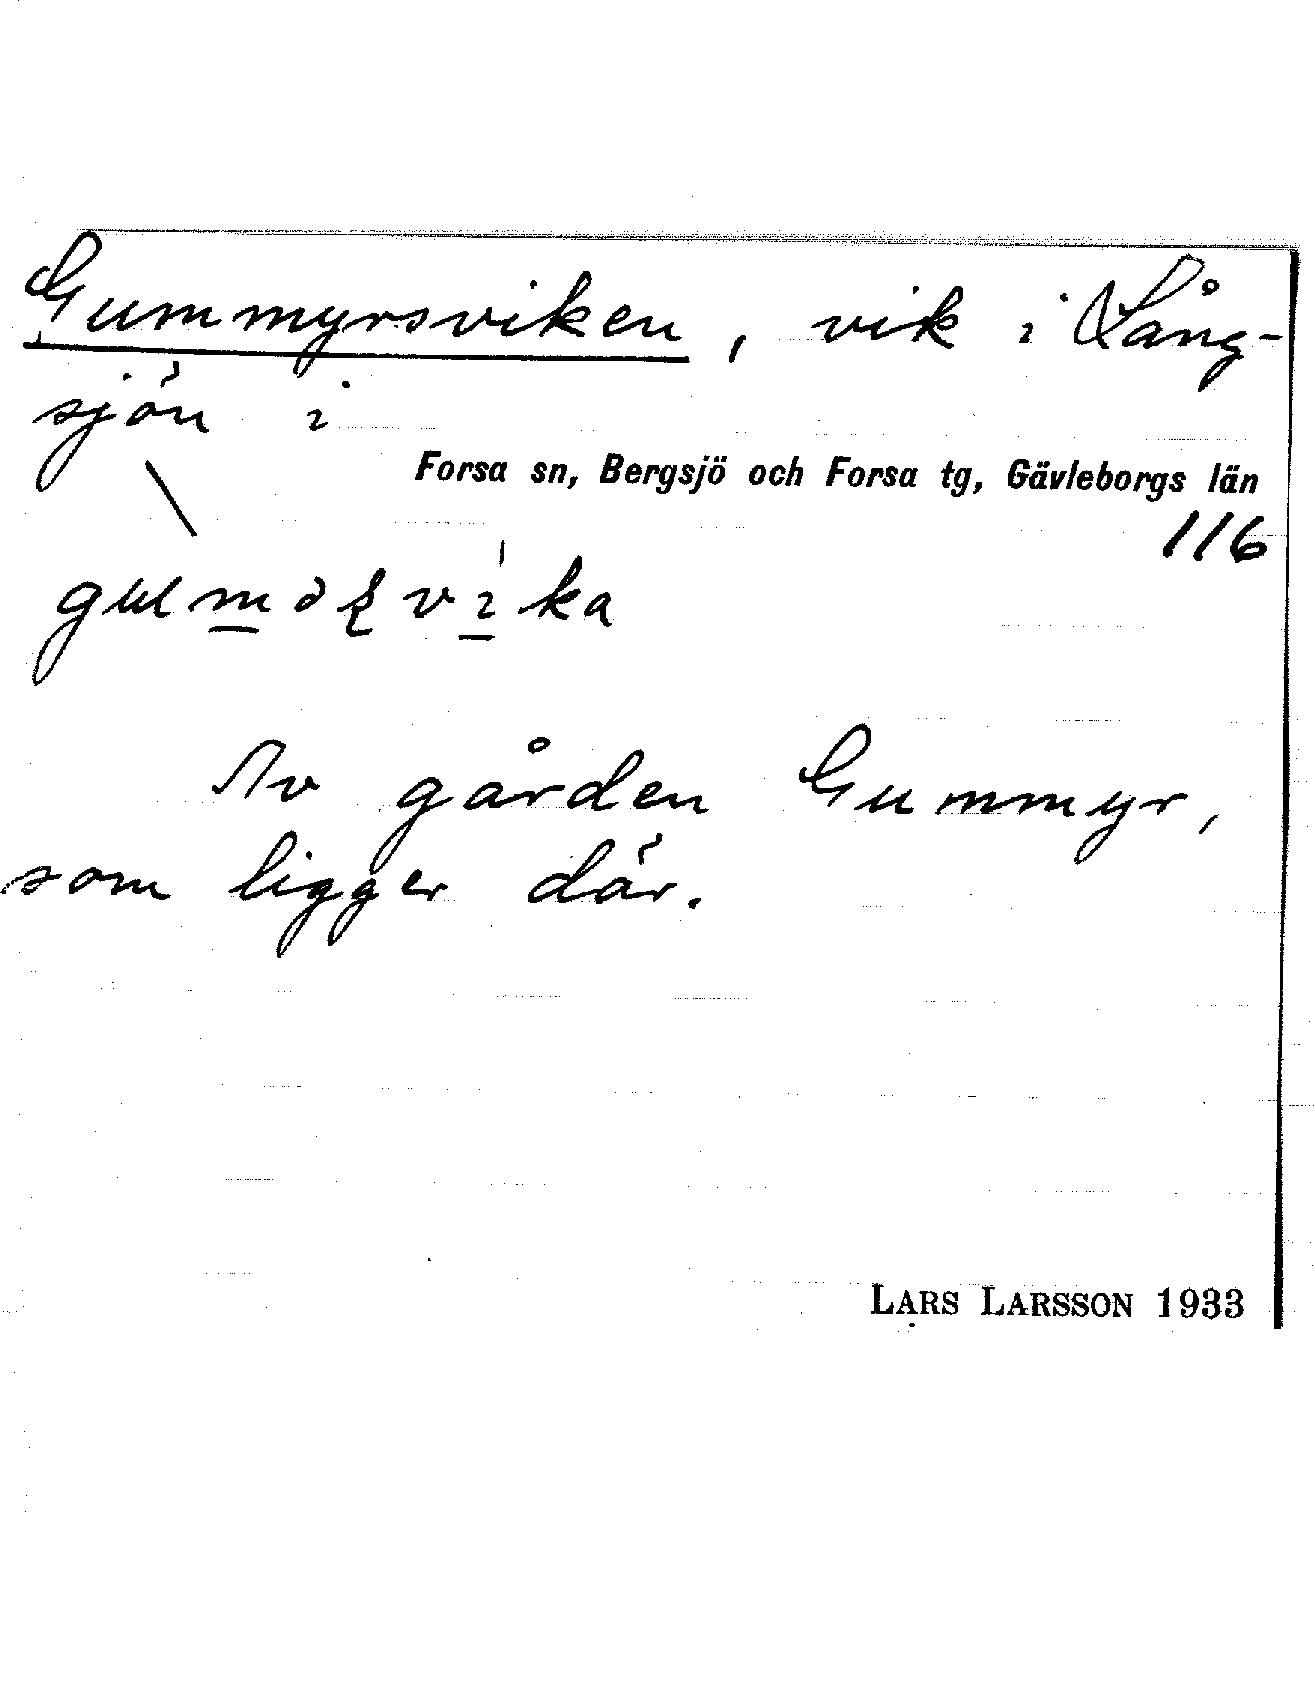 Gummyrsviken, vik i Lång-
sjön i
Forsa sn, Bergsjö och Forsa tg, Gävleborgs län
116
Av gården Gummyr,
som ligger där.
LARS LARSSON 1933